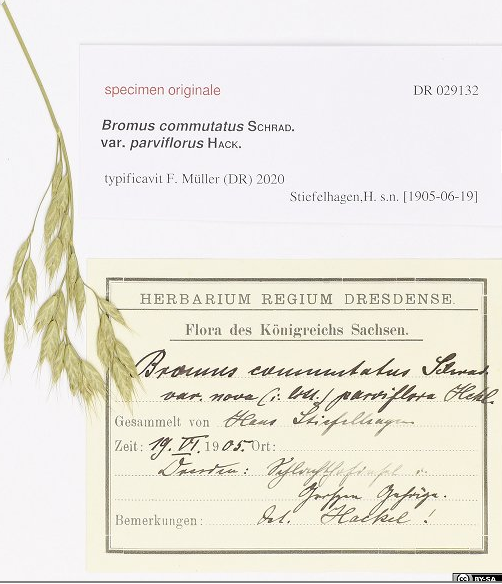 specimen originale DR 029132
Bromus commutatus SCHRAD.
var. parviflorus HACK.
typificavit F. Müller (DR) 2020
Stiefelhagen,H. s.n. [1905-06-19]
HERBARIUM REGIUM DRESDENSE.
Flora des Königreichs Sachsen.
Bromus commutatus Schrad.
var. nova (i. litt.) parviflora Hckl.
Gesammelt von Hans Stiefelhagen
Zeit: 19. VI. 1905. Ort:
Dresden: Schlachthofinsel
Großen Gehege.
Bemerkungen: det. Hackel!
BY-SA